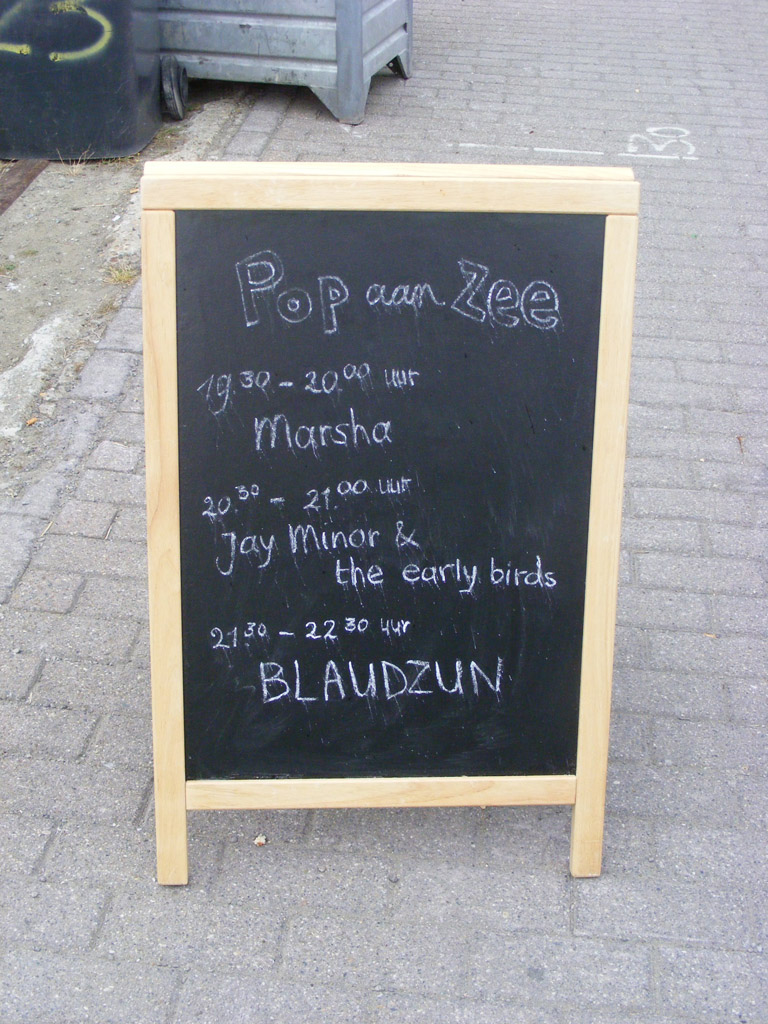 25
30
Pop aan Zee
19.30 - 20.00 uur
Marsha
20.30 - 21.00 uur
Jay Minor &
the early birds
21 30 - 22 30 uur
BLAUDZUN